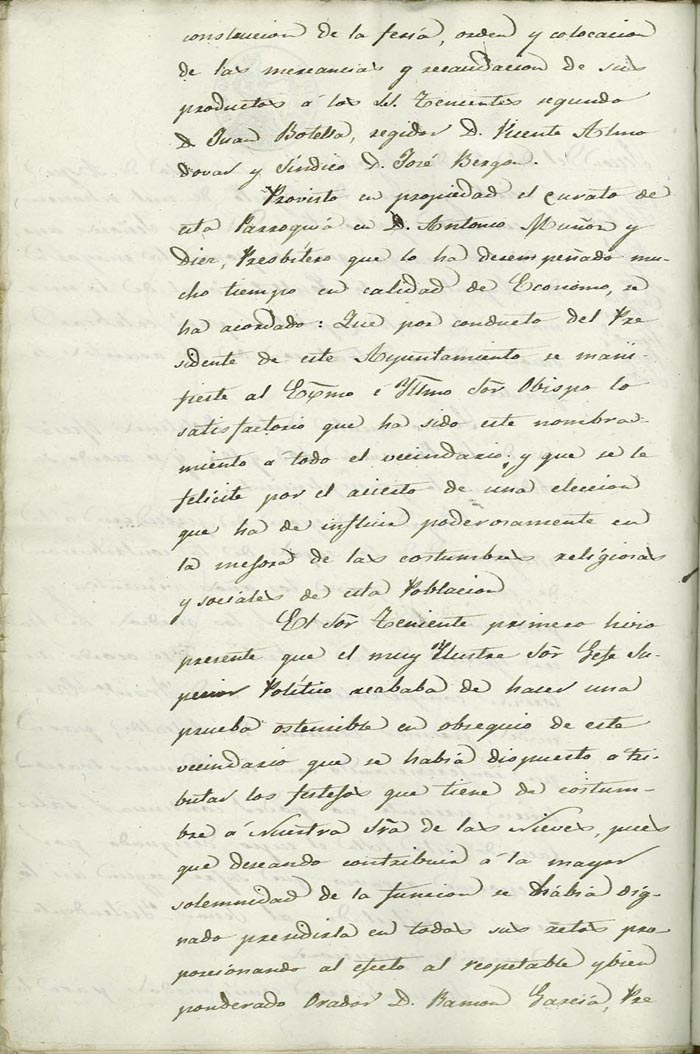 construccion de la feria, orden y colocacion
de las mercancias y recaudacion de sus
productos á los SS. Tenientes segundo
D. Juan Botella, regidor D. Vicente Almo
dovar y Sindico D. José Bergon.
Provisto en propiedad el curato de
esta Parroquia en D. Antonio Muñoz y
Diez, Presbitero que lo ha desempeñado mu-
cho tiempo en calidad de Economo, se
ha acordado: Que por conducto del Pre
sidente de este Ayuntamiento se mani-
fieste al Exmo é Yltmo Sör Obispo lo
satisfactorio que ha sido este nombra-
miento a todo el vecindario, y que se le
felicite por el acierto de una eleccion
que ha de influir poderosamente en
la mejora de las costumbres religiosas
y sociales de esta Poblacion
El Sör Teniente primero hizo
presente que el muy Ylustre Sör Gefe Su-
perior Político acababa de hacer una
prueba ostensible en obsequio de este
vecindario que se habia dispuesto a tri-
butar los festejos que tiene de costum-
bre á Nuestra Sra de las Nieves, pues
que deseando contribuir á la mayor
solemnidad de la funcion se habia dig-
nado presidirla en todos sus actos pro
porcionando al efecto al respetable y bien
ponderado Orador D. Ramon Garcia, Pre